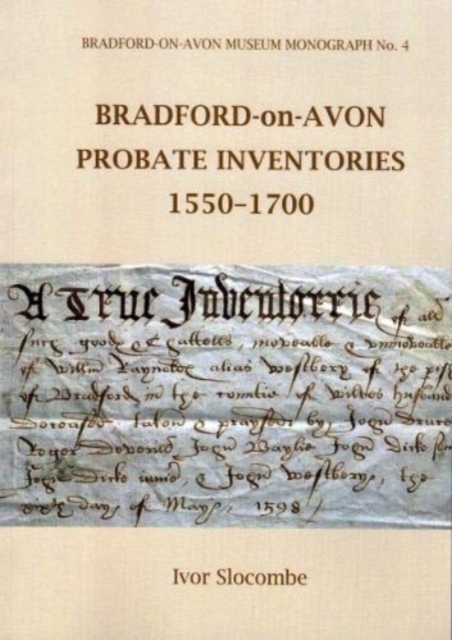 BRADFORD-ON-AVON MUSEUM MONOGRAPH No. 4
BRADFORD-on-AVON
PROBATE INVENTORIES
1550–1700
A True Inventorrie of all
goods & Cattells, moveable & unmoveable
of Willm Raynolds alias westbery of the
of Bradford in the of husband
taken & praysed by John
Roger John Baylie John Dicke
John Dicke & John westbery, the
day of Maye, 1598
Ivor Slocombe